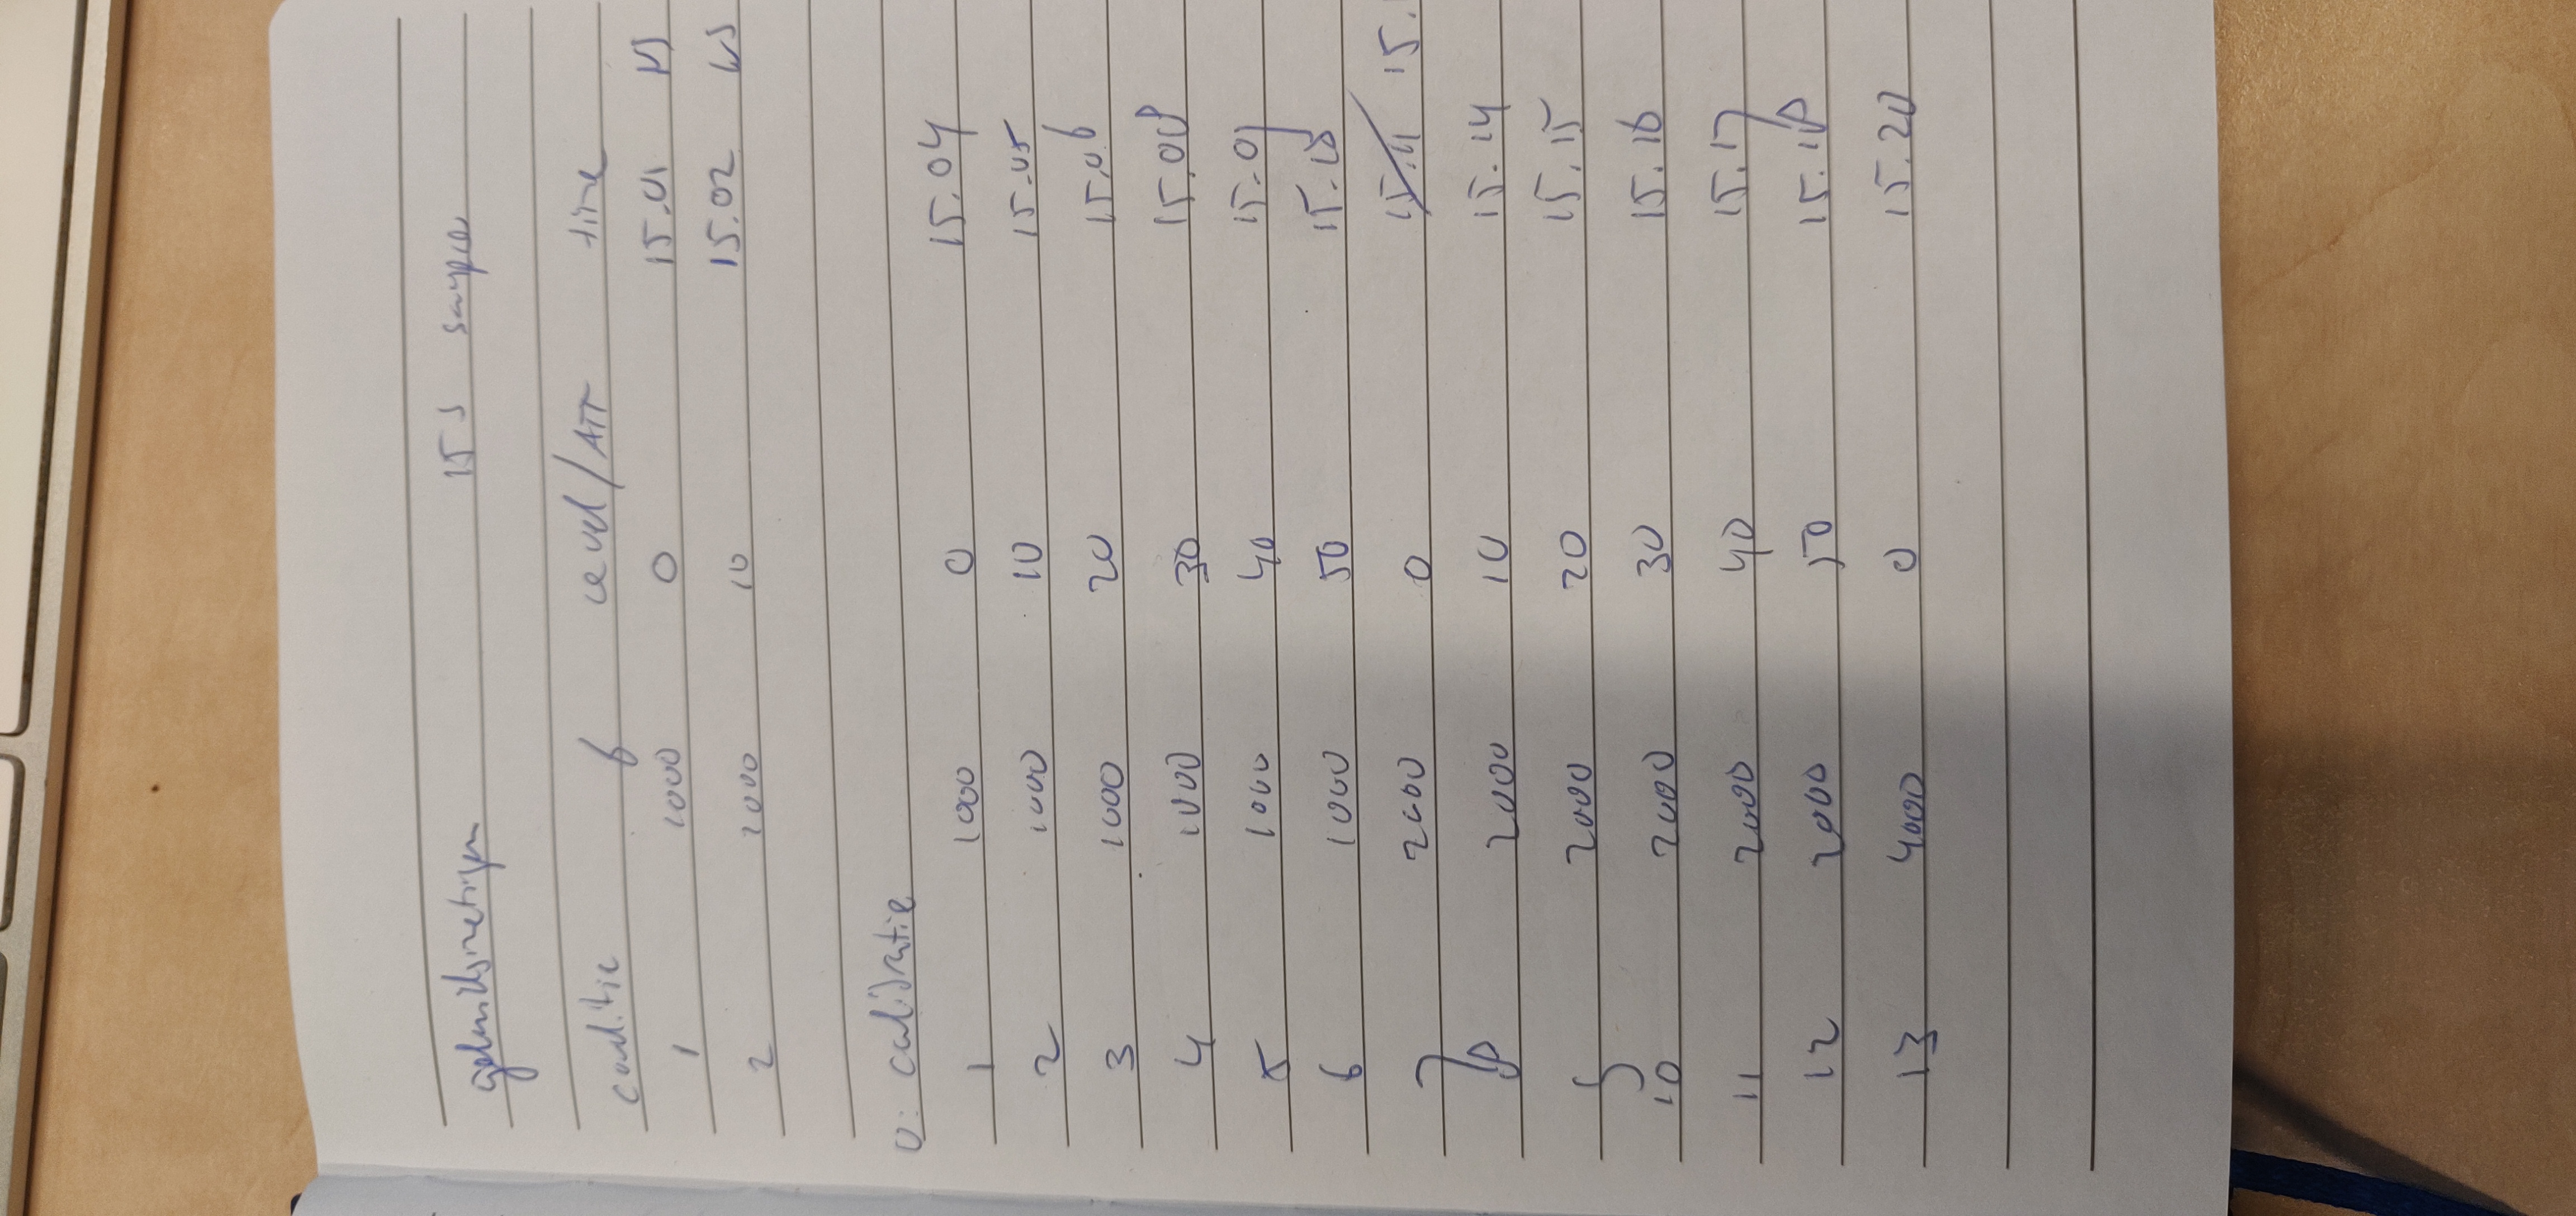 geluidsmetingen 15 s samples
conditie f Level/ATT time
1 1000 0 15.01
2 2000 10 15.02
0: calibratie
1 1000 0 15.04
2 1000 10 15.05
3 1000 20 15.06
4 1000 30 15.08
5 1000 40 15.09
6 1000 50 15.10
7 2000 0 15.11 15.
8 2000 10 15.14
9 2000 20 15.15
10 2000 30 15.16
11 2000 40 15.17
12 2000 50 15.18
13 4000 0 15.20